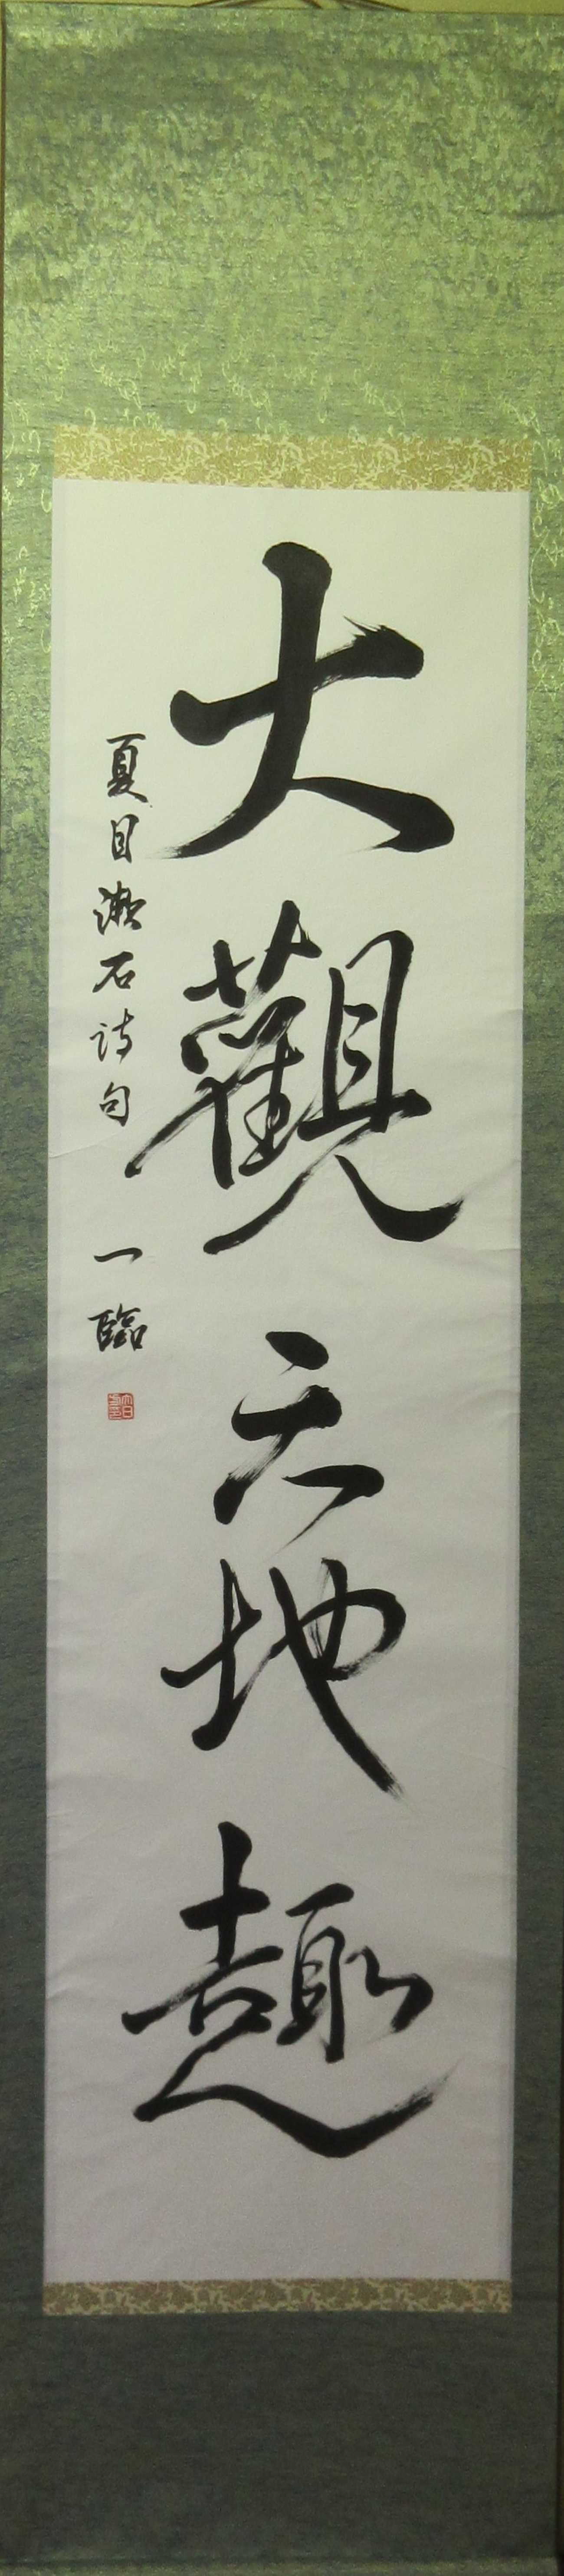 大觀天地趣
夏目漱石詩句 一臨